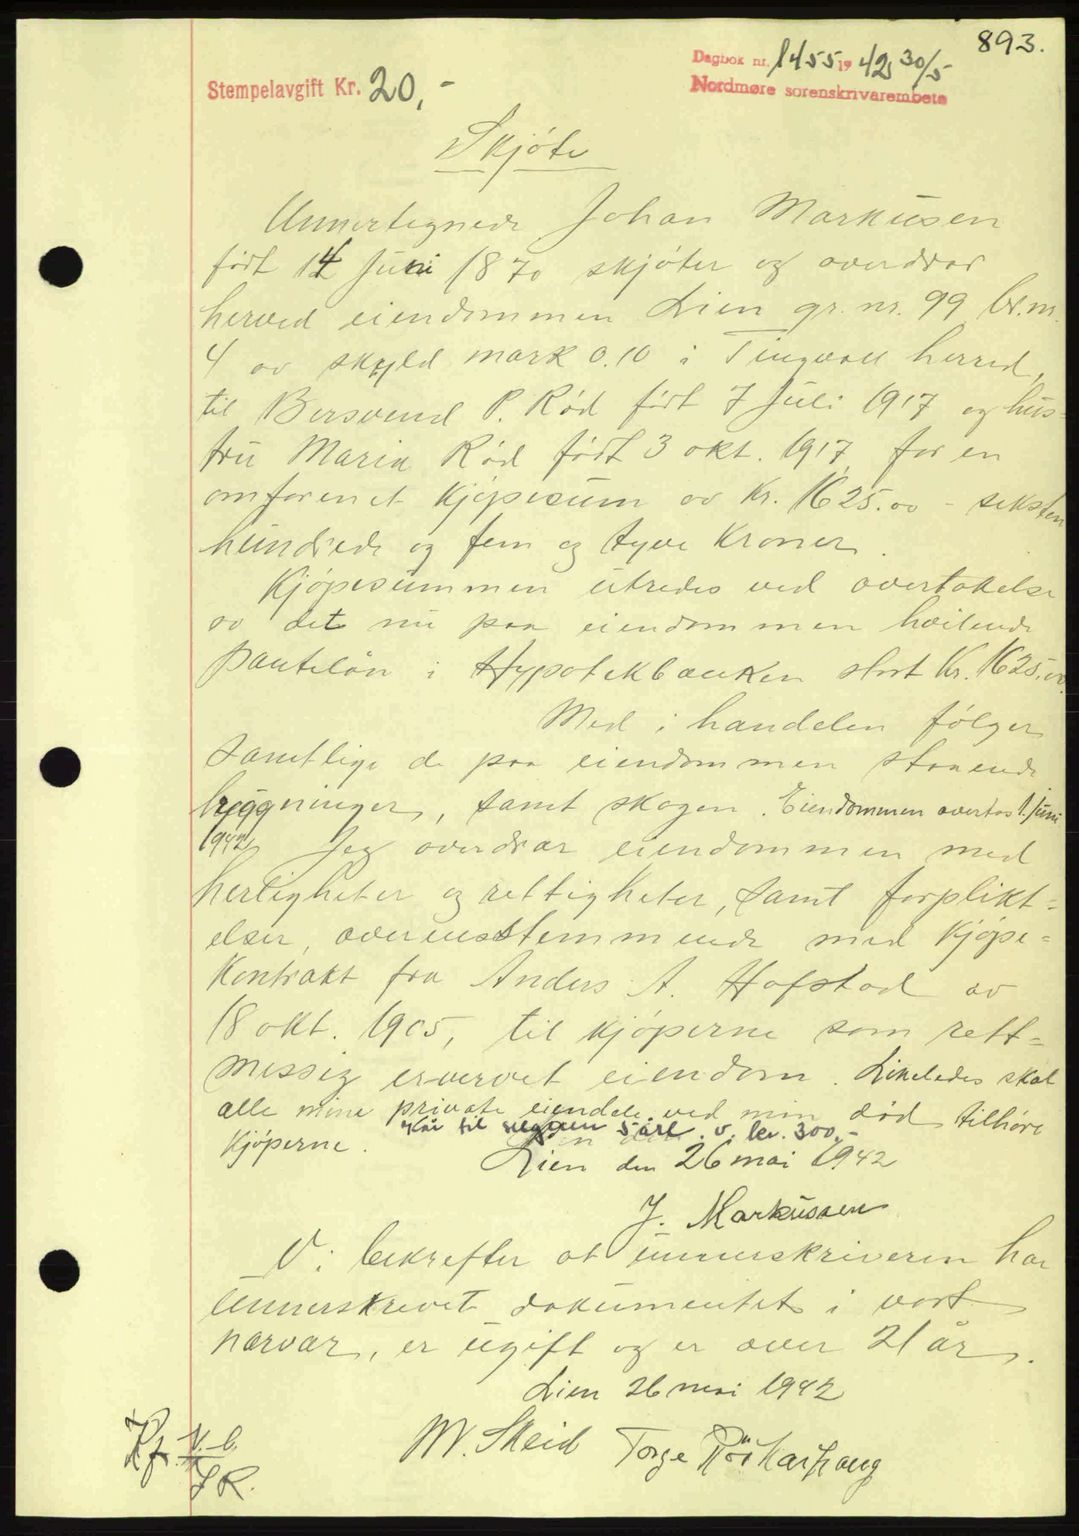 893.
Dagbok nr. 1455 1942 30/5
Stempelavgift Kr. 20,-
Nordmøre sorenskrivarembete
Skjøte
Unnertegnede Johan Markusen
født 14 Juni 1870 skjøter og overdrar
herved eiendommen Lien gr. nr. 99 br. nr.
4 av skyld mark 0.10 i Tingvoll herred,
til Bersvend P. Rød født 7 Juli 1917 og hus=
tru Maria Rød født 3 okt. 1917, for en
omforenet kjøpesum av Kr. 1625.00 - seksten
hundrede og fem og tyve Kroner.
Kjøpesummen utredes ved overtakelse
av det nu paa eiendommen heilende
pantelån i Hypotekbanken stort Kr. 1625.00.
Med i handelen følger
samtlige de paa eiendommen staaende
byggninger, samt skogen. Eiendommen overtas 1. juni
1942. Jeg overdrar eiendommen med
herligheter og rettigheter, samt forplikt=
elser, overensstemmende med Kjøpe=
Kontrakt fra Anders A. Hofstad av
18 okt. 1905, til kjøperne som rett=
messig ervervet eiendom. Likeledes skal
alle mine private eiendele ved min død tilhøre
Kjøperne. Kår til selgeren 5 årl. v. kr. 300,-
Lien den 26 mai 1942
J. Markussen
Vi bekrefter at unnerskriveren har
unnerskrevet dokumentet i vort
nærvær, er ugift og er over 21 år.
Lien 26 mai 1942
M. Skeid Torge Røkkarhaug
Kf. V. L.
J R.